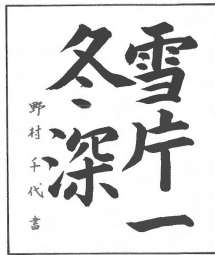 雪片一
冬深
野村千代書